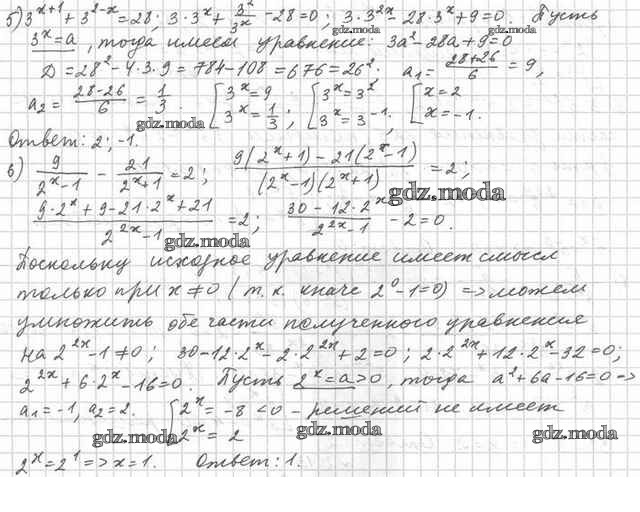 б) 3^{x+1} + 3^{2-x} = 28; 3·3^x + 3^2/3^x - 28 = 0; 3·3^{2x} - 28·3^x + 9 = 0. Пусть
gdz.moda gdz.moda
3^x = a, тогда имеем уравнение: 3a^2 - 28a + 9 = 0
D = 28^2 - 4·3·9 = 784 - 108 = 676 = 26^2; a_1 = (28+26)/6 = 9,
a_2 = (28-26)/6 = 1/3. [3^x = 9 3^x = 1/3; [3^x = 3^2 3^x = 3^{-1}; [x = 2 x = -1.
gdz.moda
Ответ: 2; -1.
в) 9/(2^x-1) - 21/(2^x+1) = 2; (9(2^x+1) - 21(2^x-1))/((2^x-1)(2^x+1)) = 2;
gdz.moda
(9·2^x + 9 - 21·2^x + 21)/(2^{2x}-1) = 2; (30 - 12·2^x)/(2^{2x}-1) - 2 = 0.
gdz.moda
Поскольку исходное уравнение имеет смысл
только при x ≠ 0 (т.к. иначе 2^0 - 1 = 0) => можем
умножить обе части полученного уравнения
на 2^{2x} - 1 ≠ 0; 30 - 12·2^x - 2·2^{2x} + 2 = 0; 2·2^{2x} + 12·2^x - 32 = 0;
2^{2x} + 6·2^x - 16 = 0. Пусть 2^x = a > 0, тогда a^2 + 6a - 16 = 0 ->
a_1 = -1, a_2 = 2. [2^x = -8 < 0 - решений не имеет
2^x = 2
gdz.moda gdz.moda gdz.moda
2^x = 2^1 => x = 1. Ответ: 1.